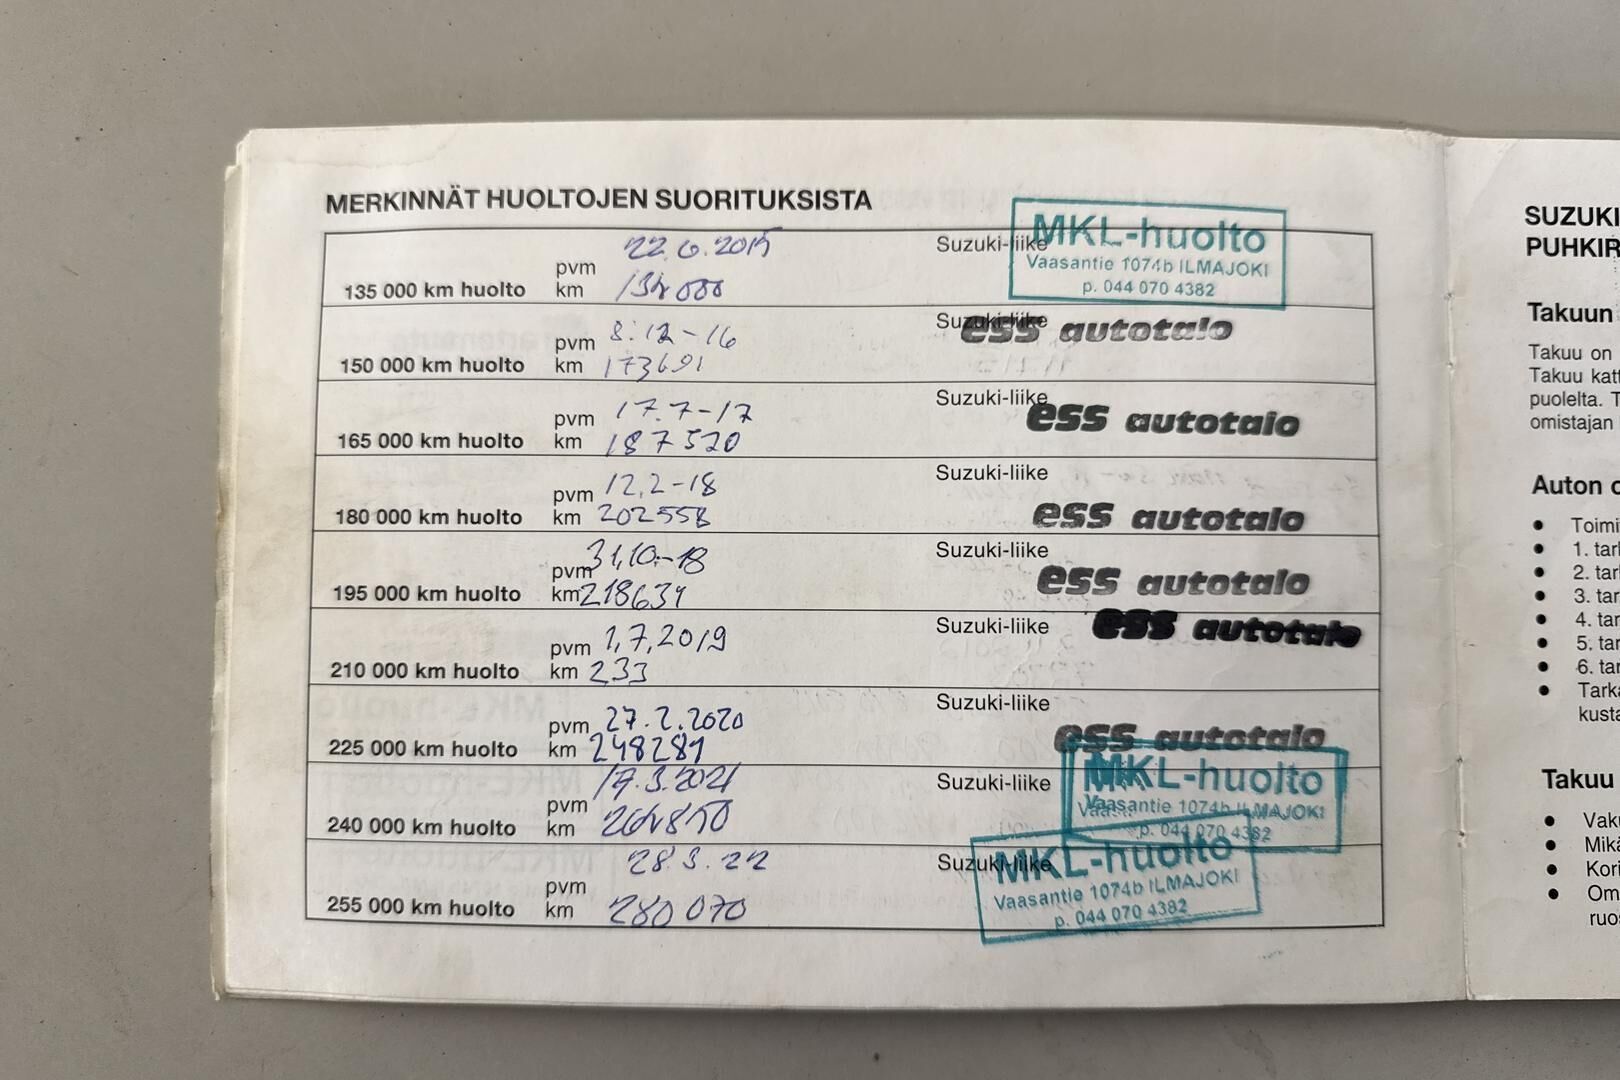 MERKINNÄT HUOLTOJEN SUORITUKSISTA
135 000 km huolto pvm 22.6.2015 Suzuki-liike MKL-huolto
km 134 000 Vaasantie 1074b ILMAJOKI
p. 044 070 4382
150 000 km huolto pvm 8.12-16 Suzuki-liike ess autotalo
km 173691
165 000 km huolto pvm 17.7-17 Suzuki-liike ess autotalo
km 187520
180 000 km huolto pvm 12.2-18 Suzuki-liike ess autotalo
km 202558
195 000 km huolto pvm 31.10.-18 Suzuki-liike ess autotalo
km 218634
210 000 km huolto pvm 1.7.2019 Suzuki-liike ess autotalo
km 233
225 000 km huolto pvm 27.2.2020 Suzuki-liike ess autotalo
km 248281
240 000 km huolto pvm 17.3.2021 Suzuki-liike MKL-huolto
km 264850 Vaasantie 1074b ILMAJOKI
p. 044 070 4382
255 000 km huolto pvm 28.3.22 Suzuki-liike MKL-huolto
km 280 070 Vaasantie 1074b ILMAJOKI
p. 044 070 4382
SUZUKI
PUHKIR
Takuun
Takuu on
Takuu katt
puolelta. T
omistajan
Auton o
• Toimi
• 1. tar
• 2. tar
• 3. tar
• 4. tar
• 5. tar
• 6. tar
• Tarka
kusta
Takuu
• Vaku
• Mikä
• Kori
• Om
ruos